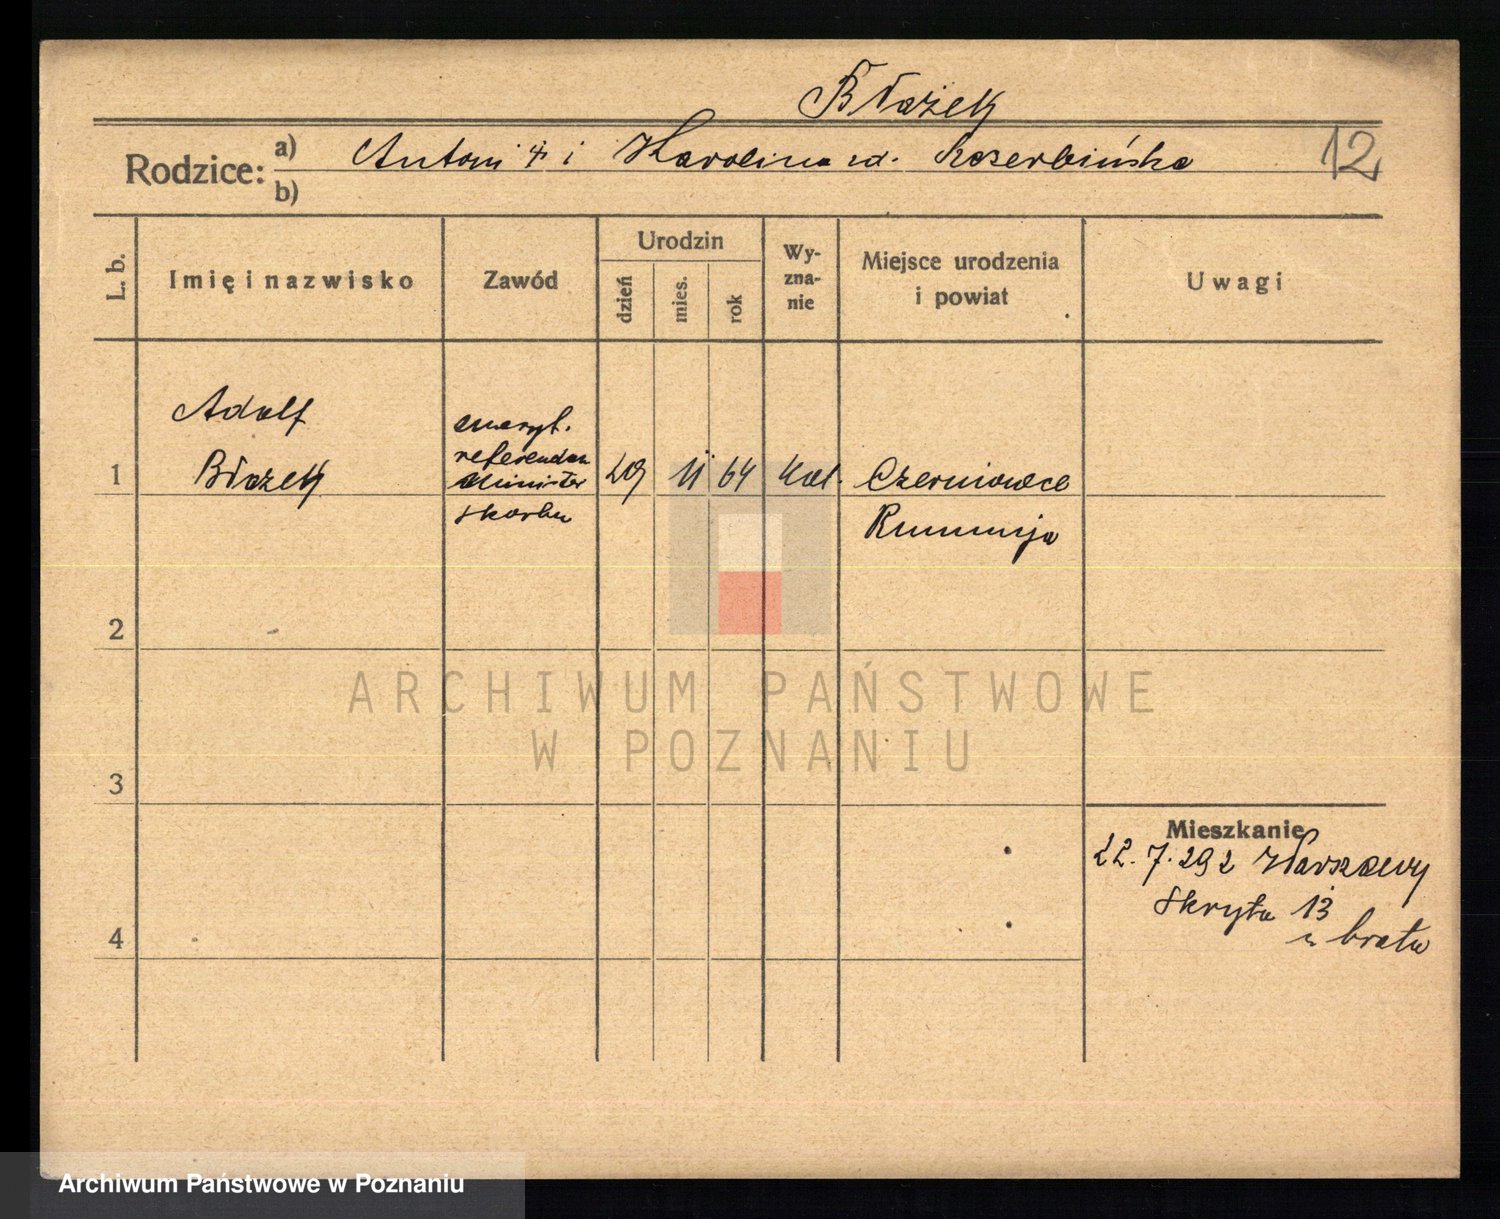 Błażek
Rodzice: a) Antoni i Karolina zd.
b)
12
L. b.
Imię i nazwisko
Zawód
Urodzin
dzień
mies.
rok
Wy-
zna-
nie
Miejsce urodzenia
i powiat
Uwagi
1
Adolf
Błażek
emeryt.
referendarz
Minister
skarbu
29 11 64 kat.
Czerniowce
Rumunija
2
3
4
Mieszkanie
22.7.29 z Warszawy
Skryta 13
u brata
ARCHIWUM PAŃSTWOWE
W POZNANIU
Archiwum Państwowe w Poznaniu